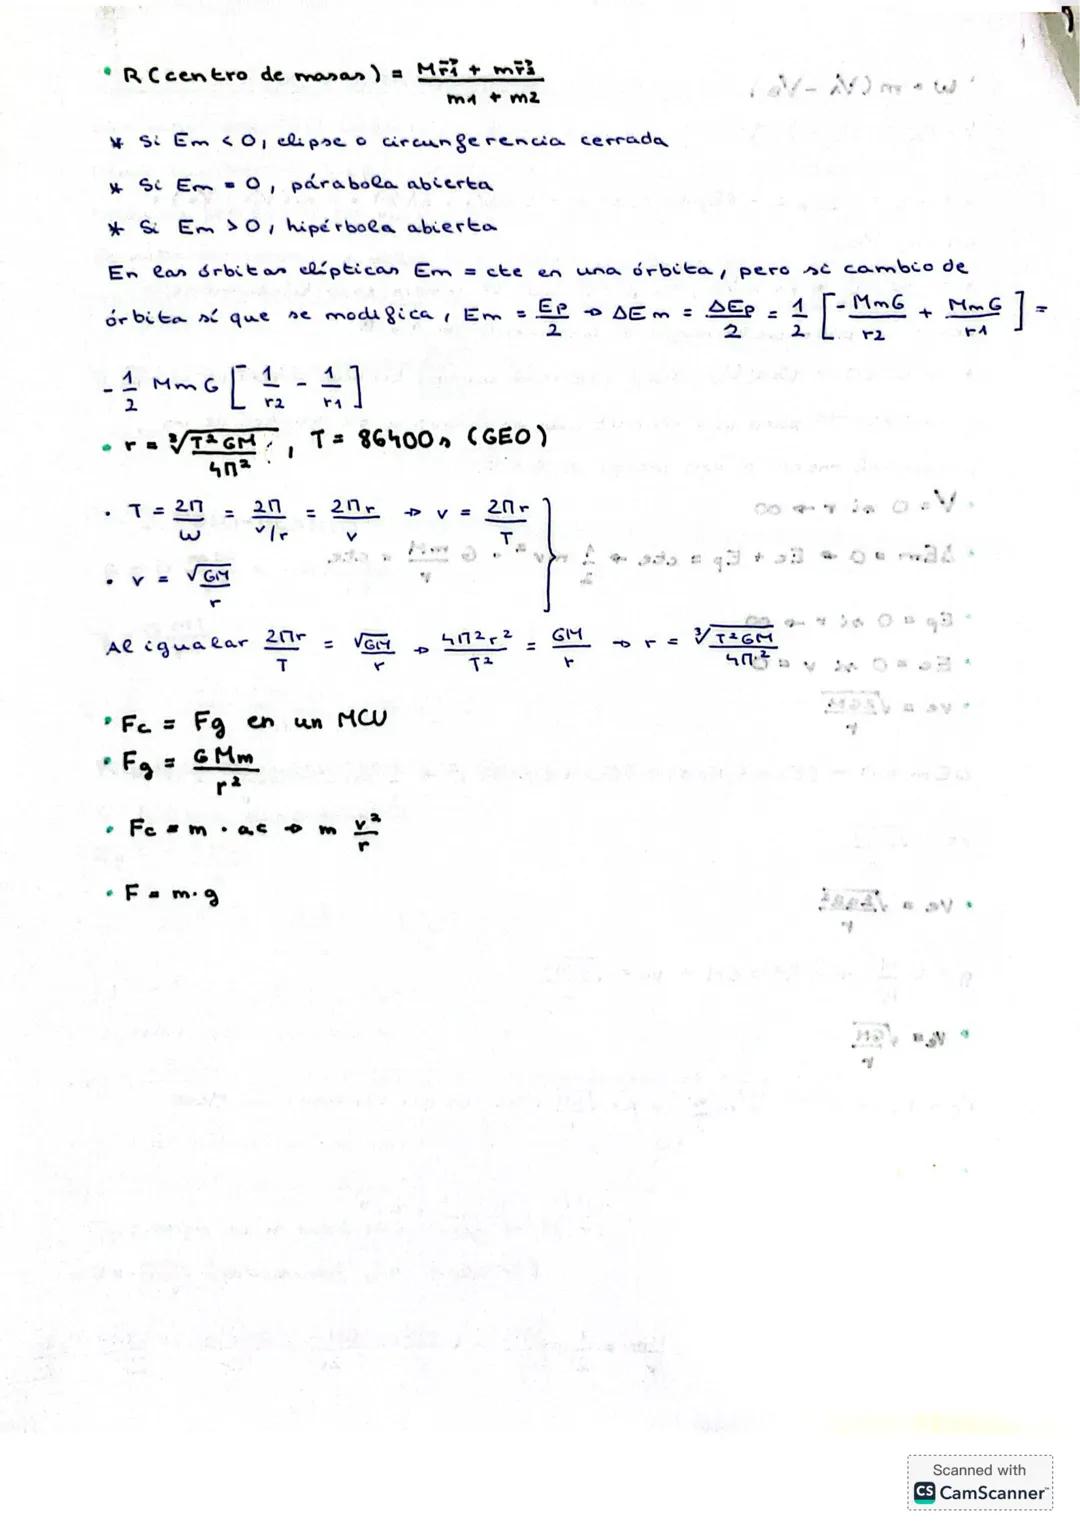 • R (centro de masas) = (M r⃗1 + m r⃗2) / (m1 + m2)
* Si Em < 0, elipse o circunferencia cerrada
* Si Em = 0, párabola abierta
* Si Em > 0, hipérbola abierta
En las órbitas elípticas Em = cte en una órbita, pero si cambio de
órbita sí que se modifica, Em = Ep/2 → ΔEm = ΔEp/2 = 1/2 [- MmG/r2 + MmG/r1] =
- 1/2 MmG [1/r2 - 1/r1]
• r = ∛(T² GM / 4π²), T = 86400 s (GEO)
• T = 2π/ω = 2π/(v/r) = 2πr/v → v = 2πr/T
• v = √GM/r
Al igualar 2πr/T = √GM/r → 4π²r²/T² = GM/r → r = ∛(T² GM / 4π²)
• Fc = Fg en un MCU
• Fg = GMm/r²
• Fc = m · ac → m v²/r
• F = m·g
Scanned with
CS CamScanner